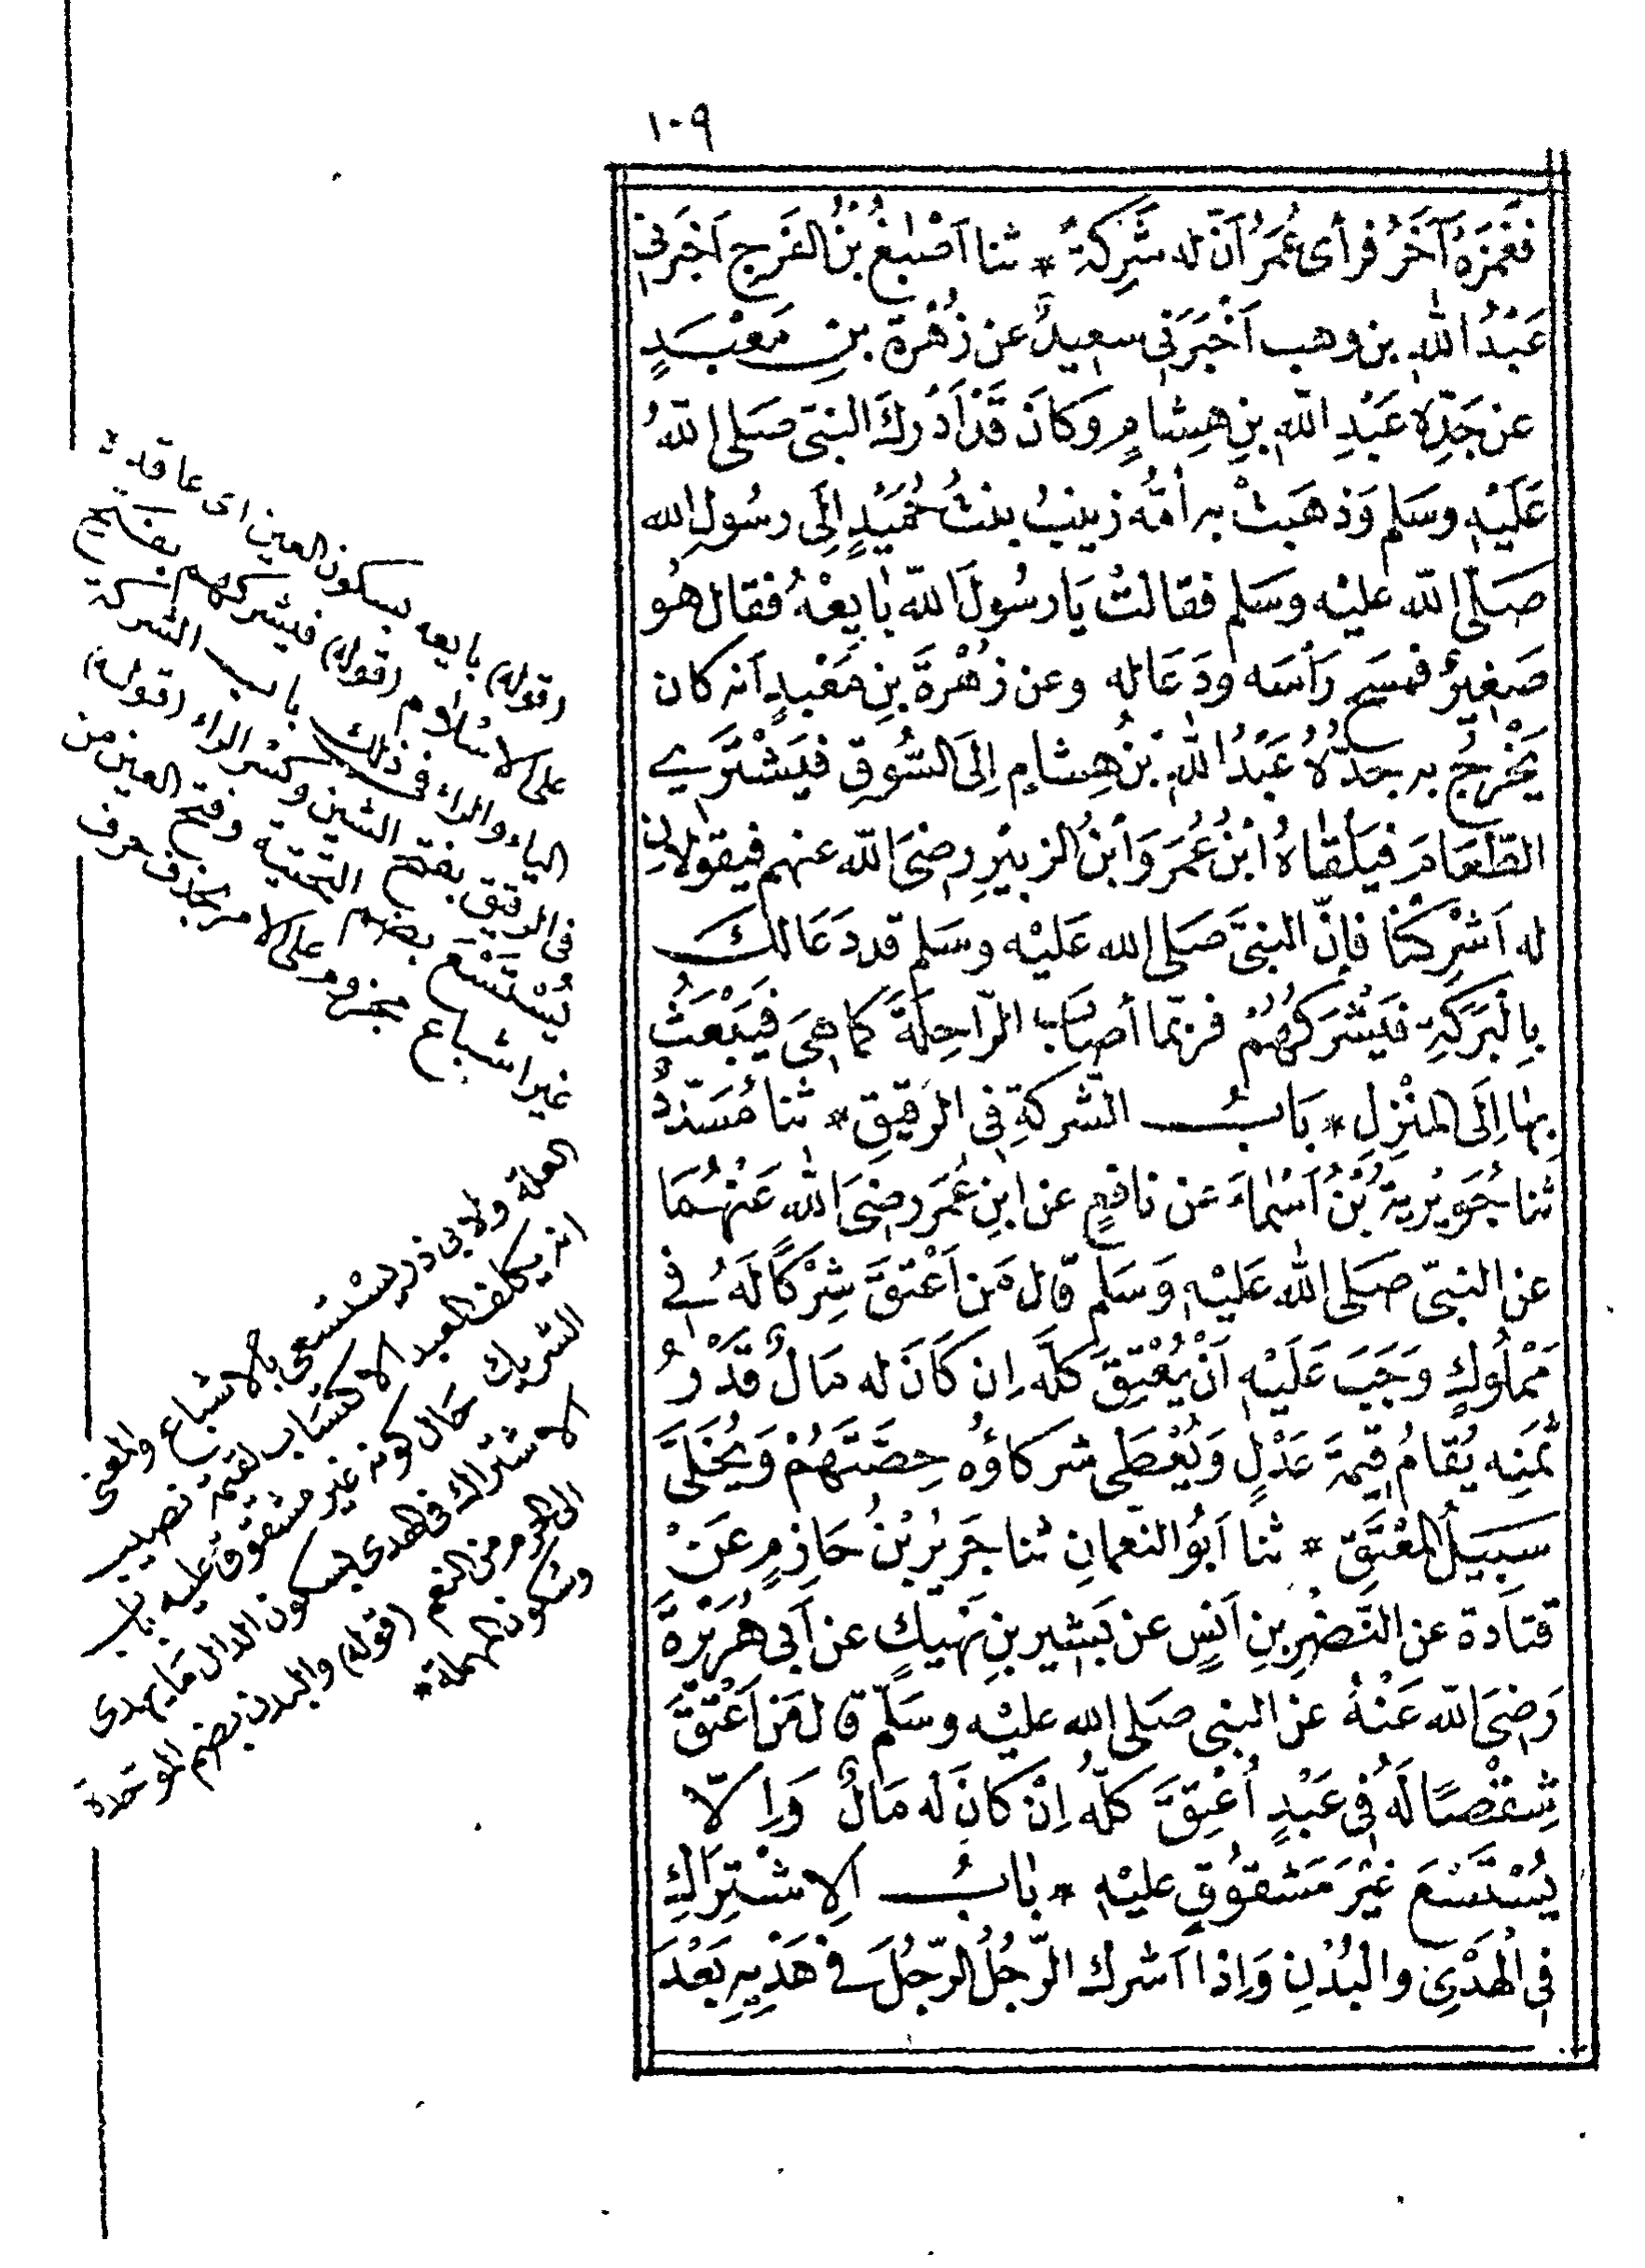 ١٠٩
فغَمَزَهُ آخَرُ فرأى عُمَرُ اَنّ له شَرِكَةً * ثنا اَصْبَغُ بْنُ الفَرَجِ اَخبَرَنى
عَبْدُ اللهِ بن وهب اَخْبَرَنى سعيدٌ عن زُهْرَةَ بنِ مَعْبَدٍ
عن جَدِّهِ عَبْدِ اللهِ بنِ هِشامٍ وَكانَ قَدْ اَدْرك النبىّ صَلى اللهُ
عَلَيْهِ وسَلم وَذهَبَتْ به اُمُّه زينبُ بنتُ حُمَيْدٍ اِلَى رسُولِ الله
صَلّى الله عليْه وسَلم فقالتْ يَا رسُولَ الله بايِعْهُ فقال هُو
صَغِيرٌ فمسَح رَأسَه ودَعَا له وعن زُهْرَةَ بنِ مَعْبدٍ اَنه كان
يَخْرُجُ به جَدُّهُ عَبْدُ اللهِ بْنُ هِشامٍ اِلَى السُّوقِ فيَشْتَرِي
الطّعَامَ فيَلْقاهُ ابْنُ عُمَرَ وَابْنُ الزبيْرِ رضىَ الله عنهم فيقولانِ
له اَشْرِكْنا فإِنّ النبىَّ صَلى الله عَليْه وسَلم قد دَعَا لكَ
بِالْبَرَكَةِ فيَشْرَكُهُمْ فرُبّما أصَابَ الرّاحِلَةَ كما هِىَ فيَبْعَثُ
بِها اِلَى المنْزِلِ * بَابُ الشّركةِ فِى الرّقيقِ * ثنا مُسَدّدٌ
ثنا جُوَيْرِيةُ بْنُ اَسْماءَ عن نافِعٍ عن ابنِ عُمَرَ رضىَ اللهُ عَنْهُمَا
عن النبىّ صَلى اللهُ عَليْهِ وَسَلم قال مَن اَعْتقَ شِرْكًا لَهُ فى
مَمْلُوكٍ وَجَبَ عَلَيْهِ اَنْ يُعْتِقَ كلَّه اِن كَانَ له مَالٌ قَدْرُ
ثمَنِه يُقامُ قِيمَةَ عَدْلٍ وَيُعْطَى شركاؤُه حِصَّتَهُمْ وَيُخَلَّى
سَبِيلُ المُعْتَقِ * ثنا اَبُو النعمانِ ثنا جَرِيرُ بْنُ حَازِمٍ عَنْ
قتادة عن النَّضْرِ بنِ اَنسٍ عن بَشيرِ بنِ نَهِيكٍ عن اَبى هُرَيْرَةَ
رَضىَ الله عَنْهُ عن النبى صَلى الله عليْه وسَلّم قال مَن اَعْتَقَ
شِقْصًا لَهُ فى عَبْدٍ اُعْتِقَ كلّهُ اِنْ كانَ لَه مَالٌ وَاِلاّ
يُسْتَسْعَ غيْرَ مَشْقوُقٍ عليْهِ * بابُ الاِشتِرَاكِ
فى الْهَدْىِ والْبُدْنِ وَاِذا اَشرك الرّجُلُ الرّجُلَ فى هَدْيِهِ بَعْدَ
(قوله) بايعه بسكون العين اى عاقده
على الاسلام (قوله) فيشركهم بفتح
الياء والراء فى ذلك باب الشركة
فى الرقيق بفتح الشين وكسر الراء (قوله)
يُسْتَسْعَ بضم التحتية وفتح العين من
غير اشباع مجزوم على الامر بحذف حرف
العلة ولابى ذر يستسعى بالاشباع والمعنى
انه يكلف العبد الاكتساب لقيمة نصيب
الشريك حال كونه غير مشقوق عليه باب
الاشتراك فى الهدى بسكون الدال ما يهدى
الى الحرم من النعم (قوله) والبدن بضم الموحدة
وسكون المهملة *